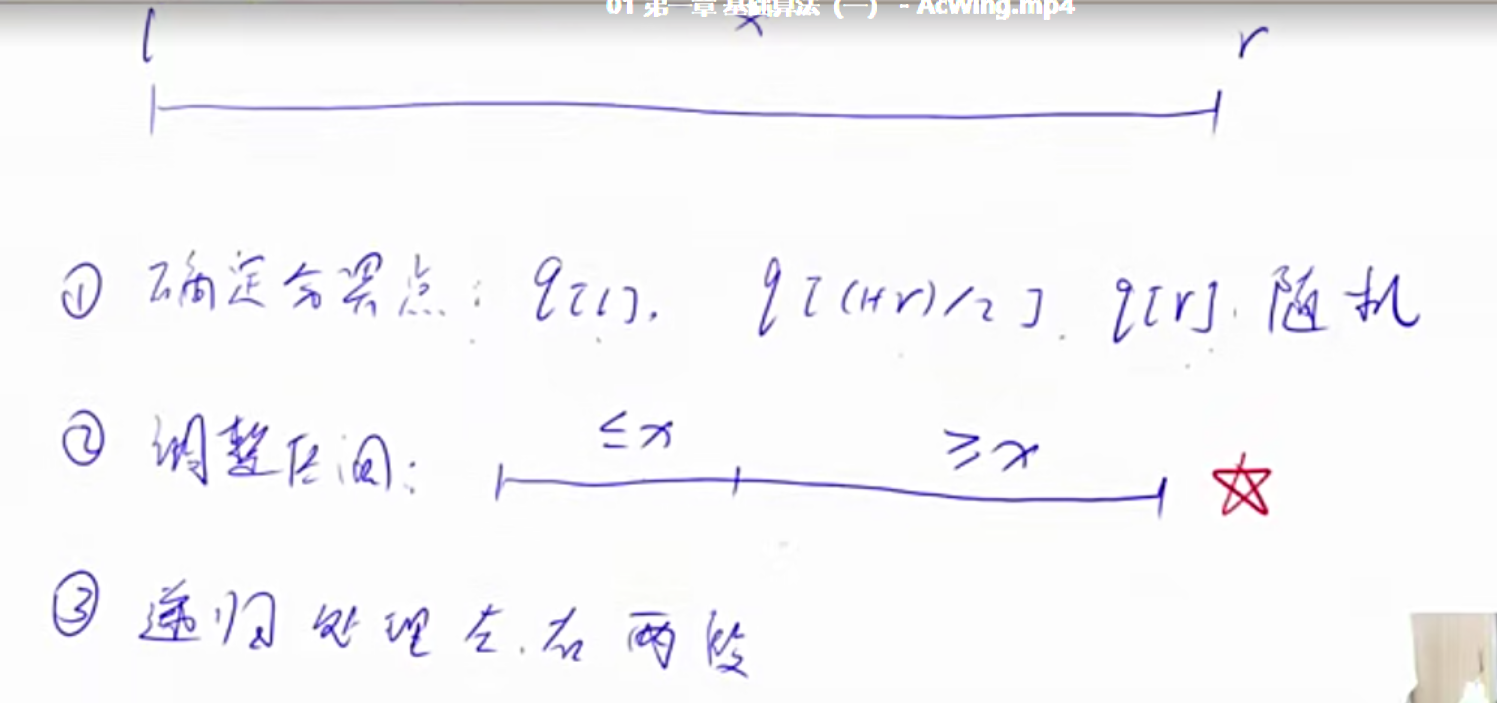 01 第一章 基础算法（一） - AcWing.mp4
l x r
① 确定分界点: q[l], q[(l+r)/2], q[r], 随机
② 调整区间: ≤x ≥x
③ 递归处理左、右两段